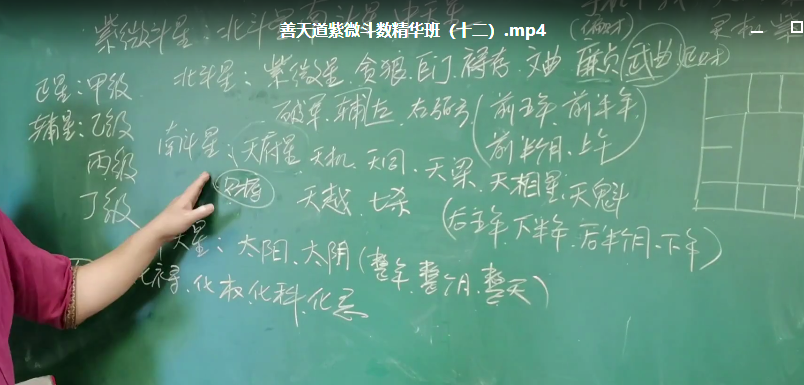 善天道紫微斗数精华班（十二）.mp4
紫微斗星：北斗
(偏财)
正星：甲级
北斗星：紫微星、贪狼、巨门、禄存、文曲、廉贞、武曲
辅星：乙级
破军、辅左、右弼（前五年、前半年、
丙级
南斗星：天府星、天机、天同、天梁、天相星、天魁
前半月、上午）
丁级
天越、七杀（后五年、下半年、后半月、下午）
天星：太阳、太阴（整年、整个月、整天）
禄、化权、化科、化忌